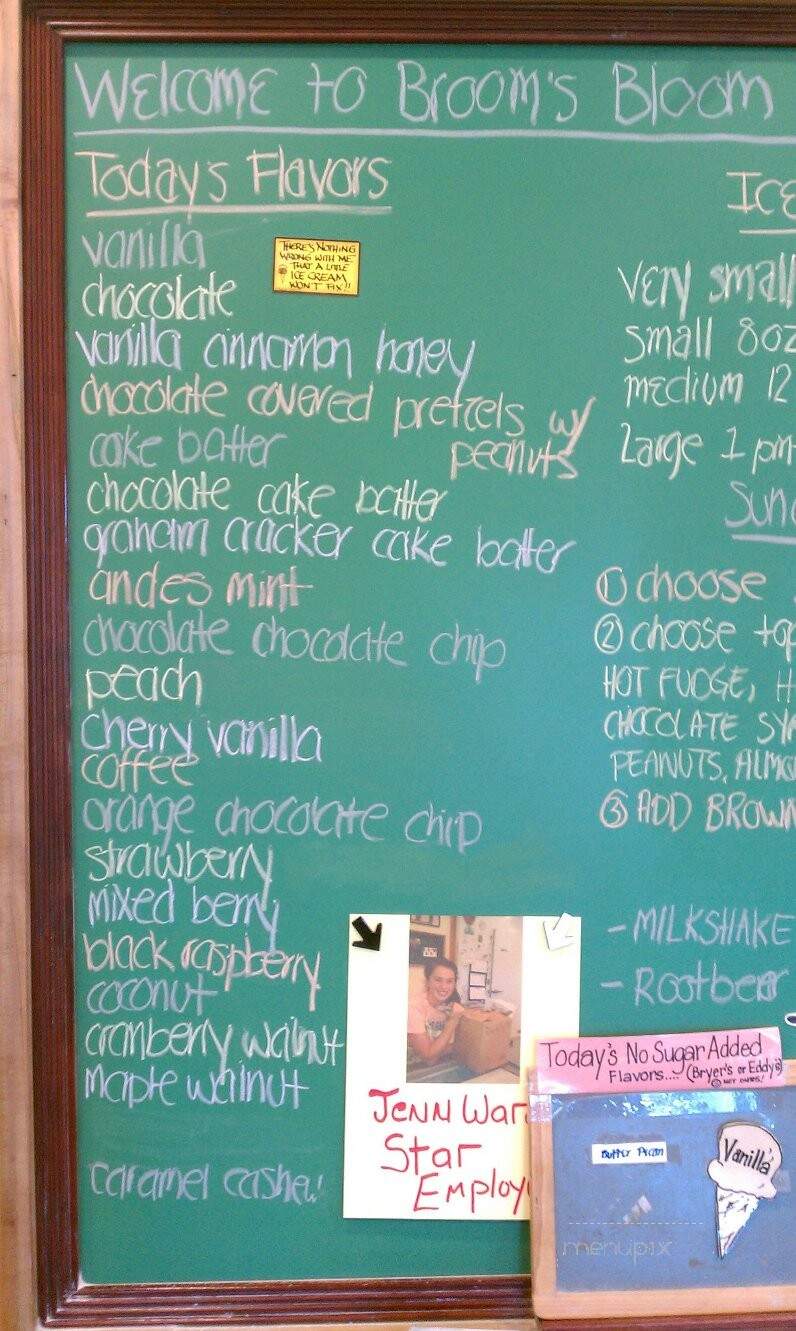 Welcome to Broom's Bloom
Today's Flavors
vanilla
THERE'S NOTHING
WRONG WITH ME
THAT A LITTLE
ICE CREAM
WON'T FIX!!
chocolate
vanilla cinnamon honey
chocolate covered pretzels w/
peanuts
cake batter
chocolate cake batter
graham cracker cake batter
andes mint
chocolate chocolate chip
peach
cherry vanilla
coffee
orange chocolate chip
strawberry
mixed berry
black raspberry
coconut
cranberry walnut
maple walnut
caramel cashew
very small
small 8oz
medium 12
large 1 pin
① choose
② choose top
HOT FUDGE, H
CHOCOLATE SY
PEANUTS, ALMO
③ ADD BROWN
- MILKSHAKE
- Rootbeer
JENN War
Star
Employ
Today's No Sugar Added
Flavors.... (Bryer's or Eddy's)
Butter Pecan
Vanilla
menupix